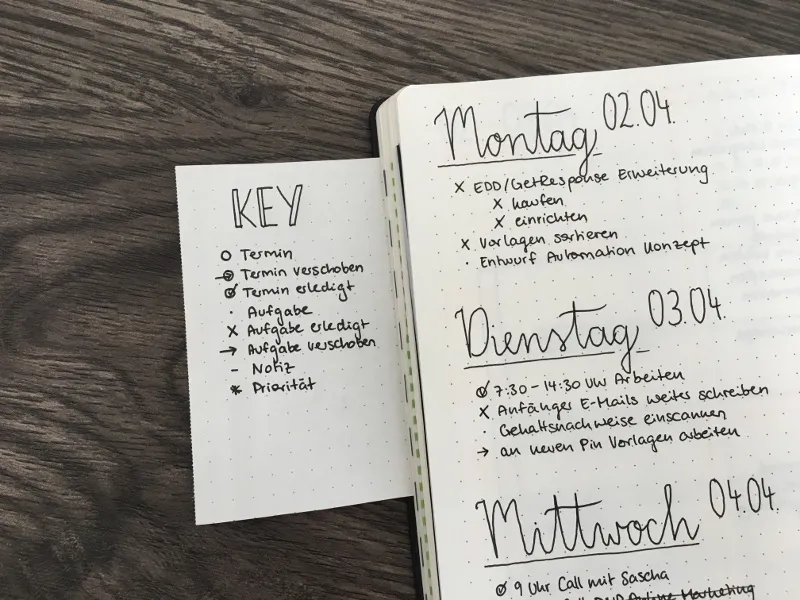 KEY
Termin
Termin verschoben
Termin erledigt
· Aufgabe
x Aufgabe erledigt
→ Aufgabe verschoben
- Notiz
* Priorität
Montag 02.04.
x EDD/GetResponse Erweiterung
x kaufen
x einrichten
x Vorlagen sortieren
· Entwurf Automation Konzept
Dienstag 03.04.
7:30-14:30 UW Arbeiten
x Anfänger E-Mails weiter schreiben
· Gehaltsnachweise einscannen
→ an neuen Pin Vorlagen arbeiten
Mittwoch 04.04.
9 Uhr Call mit Sascha
Online Marketing